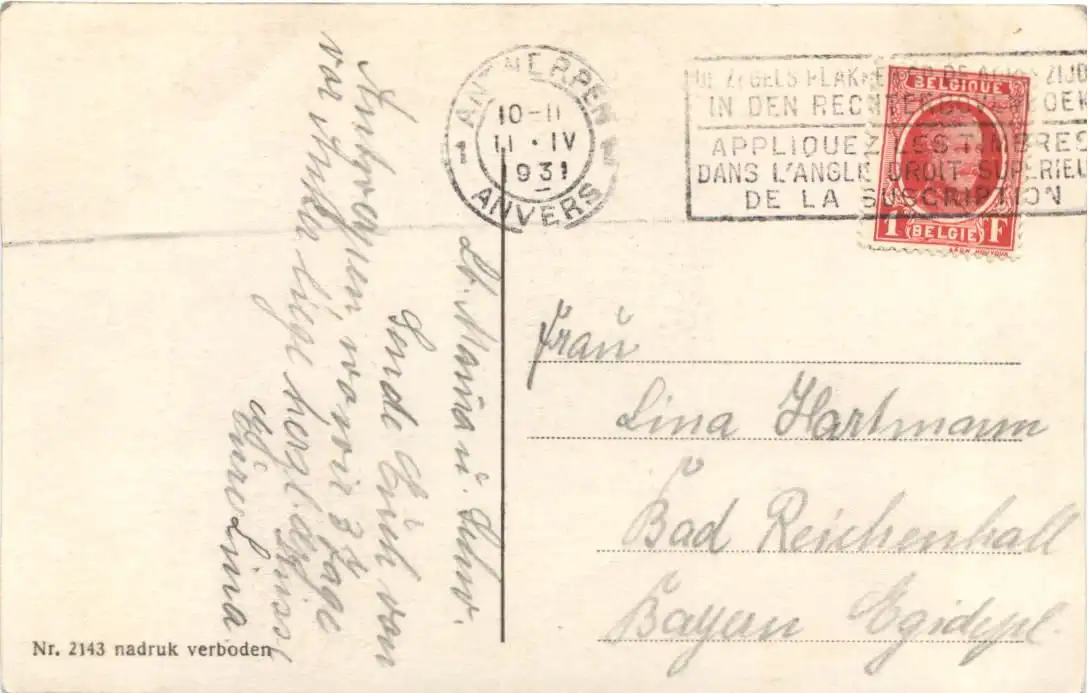 ANTWERPEN
1
10-11
11 · IV
1931
ANVERS
DE ZEGELS PLAKKEN OP DE ADRESZIJDE
IN DEN RECHTERBOVENHOEK
APPLIQUEZ LES TIMBRES
DANS L'ANGLE DROIT SUPERIEUR
DE LA SUSCRIPTION
BELGIQUE
1 F
BELGIË
Lb. Mama u.
Sende Euch von
Antwerpen, wo wir 3 Tage
vor Anker liege herzl. Grüsse
Eure Lina
Frau
Lina Hartmann
Bad Reichenhall
Bayern Egidipl.
Nr. 2143 nadruk verboden